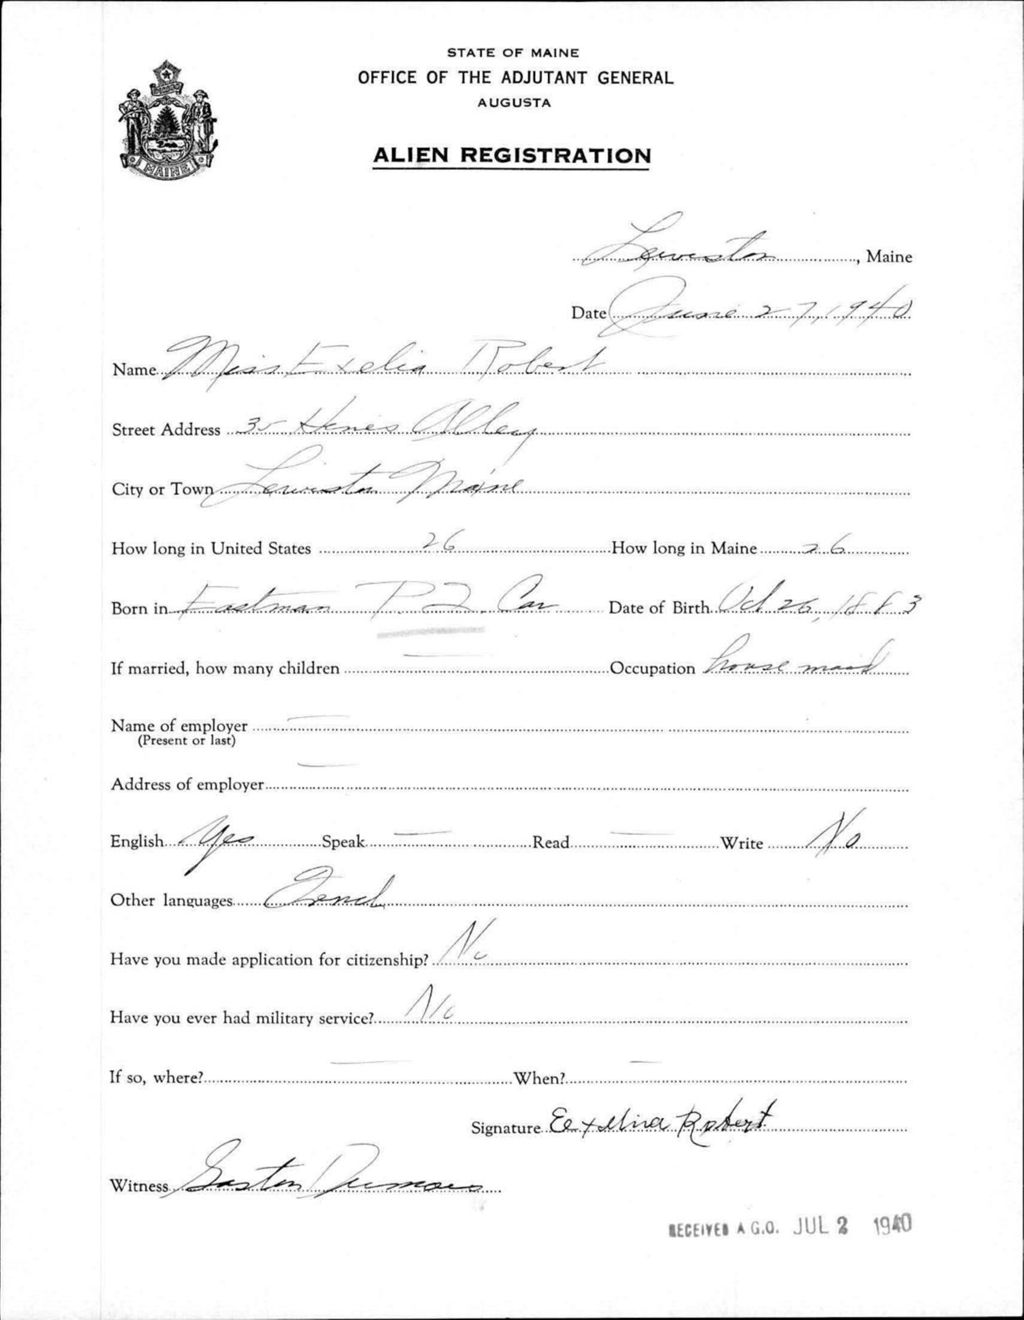 STATE OF MAINE
OFFICE OF THE ADJUTANT GENERAL
AUGUSTA
ALIEN REGISTRATION
MAINE
Lewiston, Maine
Date June 27, 1940
Name Miss Exelia Robert
Street Address Hines Alley
City or Town Lewiston Maine
How long in United States 26 How long in Maine 26
Born in Eastman P. Q. Can Date of Birth Oct 26, 1883
If married, how many children — Occupation house maid
Name of employer —
(Present or last)
Address of employer —
English Yes Speak — Read — Write No
Other languages French
Have you made application for citizenship? No
Have you ever had military service? No
If so, where? — When? —
Signature Robert
Witness Gaston Dumais
RECEIVED A.G.O. JUL 2 1940